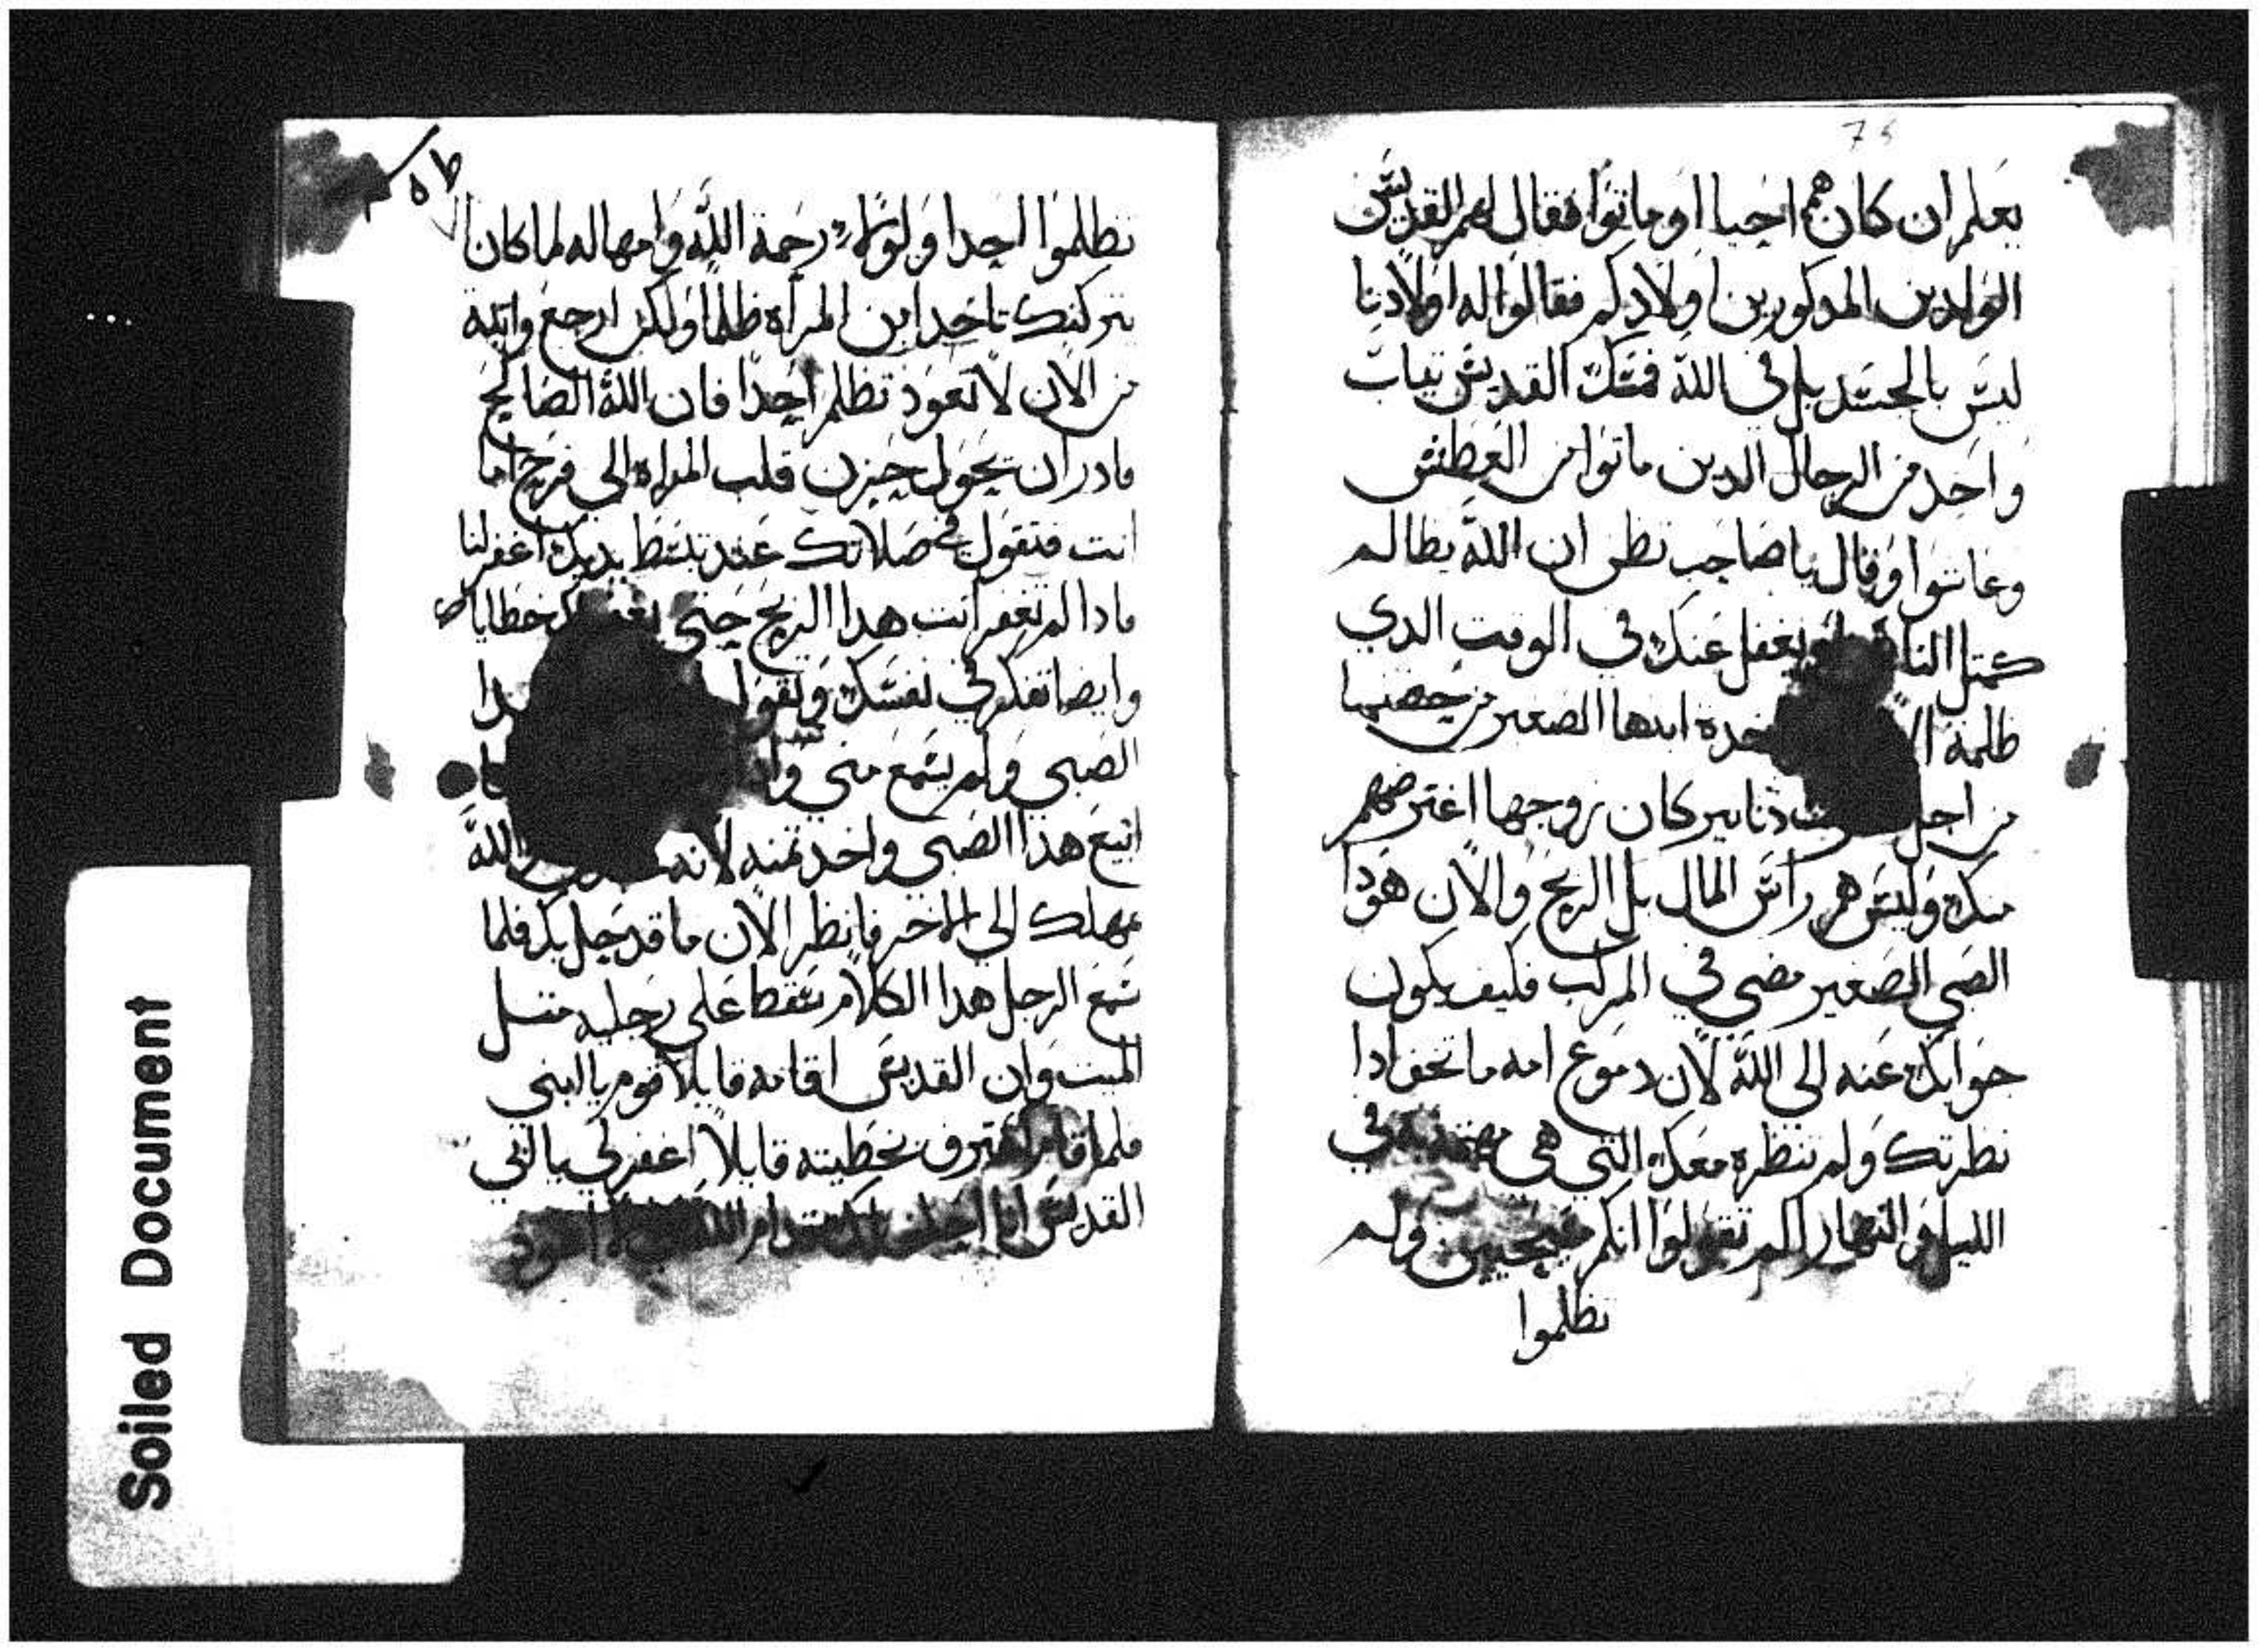 75
يعلم ان كان هم احيا او ماتوا فقال لهم القديس
الوالدين المدكورين اولادكم فقالوا له اولادنا
ليس بالجسد بل في الله فمسك القديس تياب
واحد من الرجال الدين ماتوا من العطش
وعاشوا وقال يا صاحب تظن ان الله يظالم
كمتل الناس يغفل عنك في الوقت الدي
ظلمة ابنها الصغير من حضنها
من اجل دنانير كان زوجها اغترضهم
منك وليس هم راس المال بل الربح والان هودا
الصبي الصغير مضي في المركب فكيف يكون
جوابك عنه الى الله لان دموع امه ما تجف ادا
نظرتك ولم تنظره معك التي هي في
الليل والنهار الم تقولوا انكم مسيحيين ولم
تظلموا
تظلموا احدا ولولا رحمة الله وامهاله لما كان
تركتك تاخد ابن المراه ظلما ولكن ارجع وانته
من الان لا تعود تظلم احدا فان الله الصالح
قادر ان يحول حزن قلب المراه الى فرح اما
انت فتقول في صلاتك عند تبسط يديك اغفر لنا
مادا لم تغفر انت هدا الربح حتى خطاياك
وايضا تفكر في نفسك وتقول
الصبي ولم يسمع مني
ابيع هدا الصبي واخد تمنه لانه الله
يمهلك الى الاخر فانظر الان ما قد حل بك فلما
سمع الرجل هدا الكلام سقط على رجليه متل
الميت وان القديس اقامه قايلا قوم يا ابني
فلما قام اعترف بخطيته قايلا اغفر لي يا ابي
القديس انا احلف لك قدام الله اعود
Soiled Document